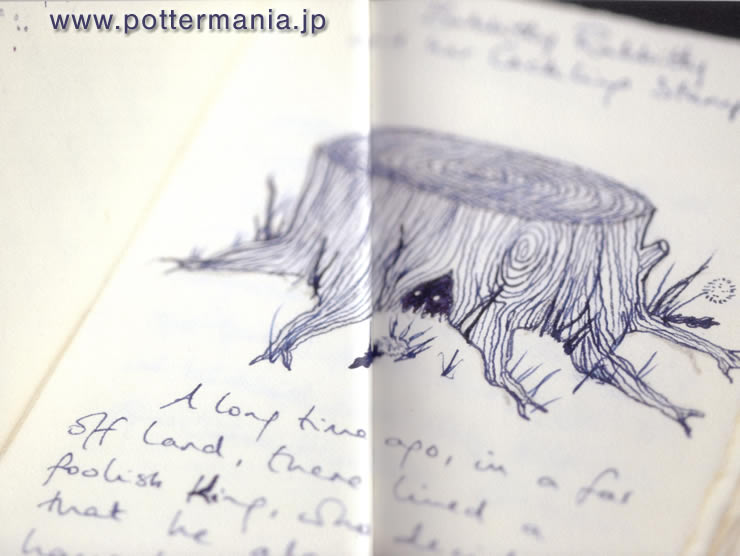 www.pottermania.jp
Babbitty Rabbitty
her Cackling Stump
A long time ago, in a far
off land, there lived a
foolish King, who
that he